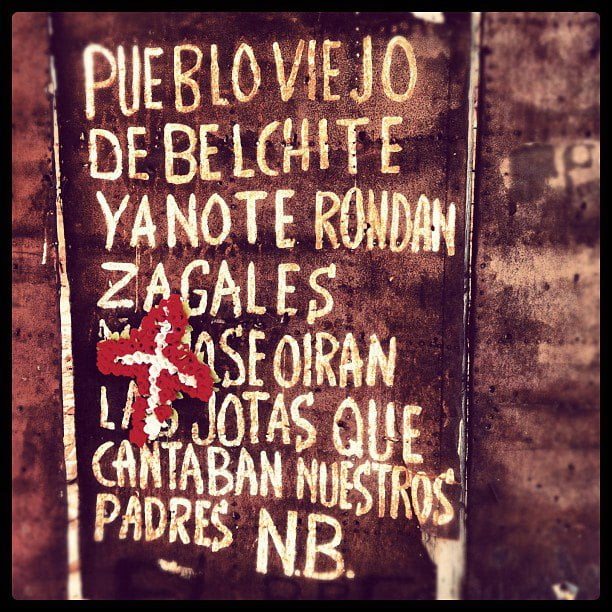 PUEBLO VIEJO
DE BELCHITE
YA NO TE RONDAN
ZAGALES
SE OIRAN
LAS JOTAS QUE
CANTABAN NUESTROS
PADRES N.B.